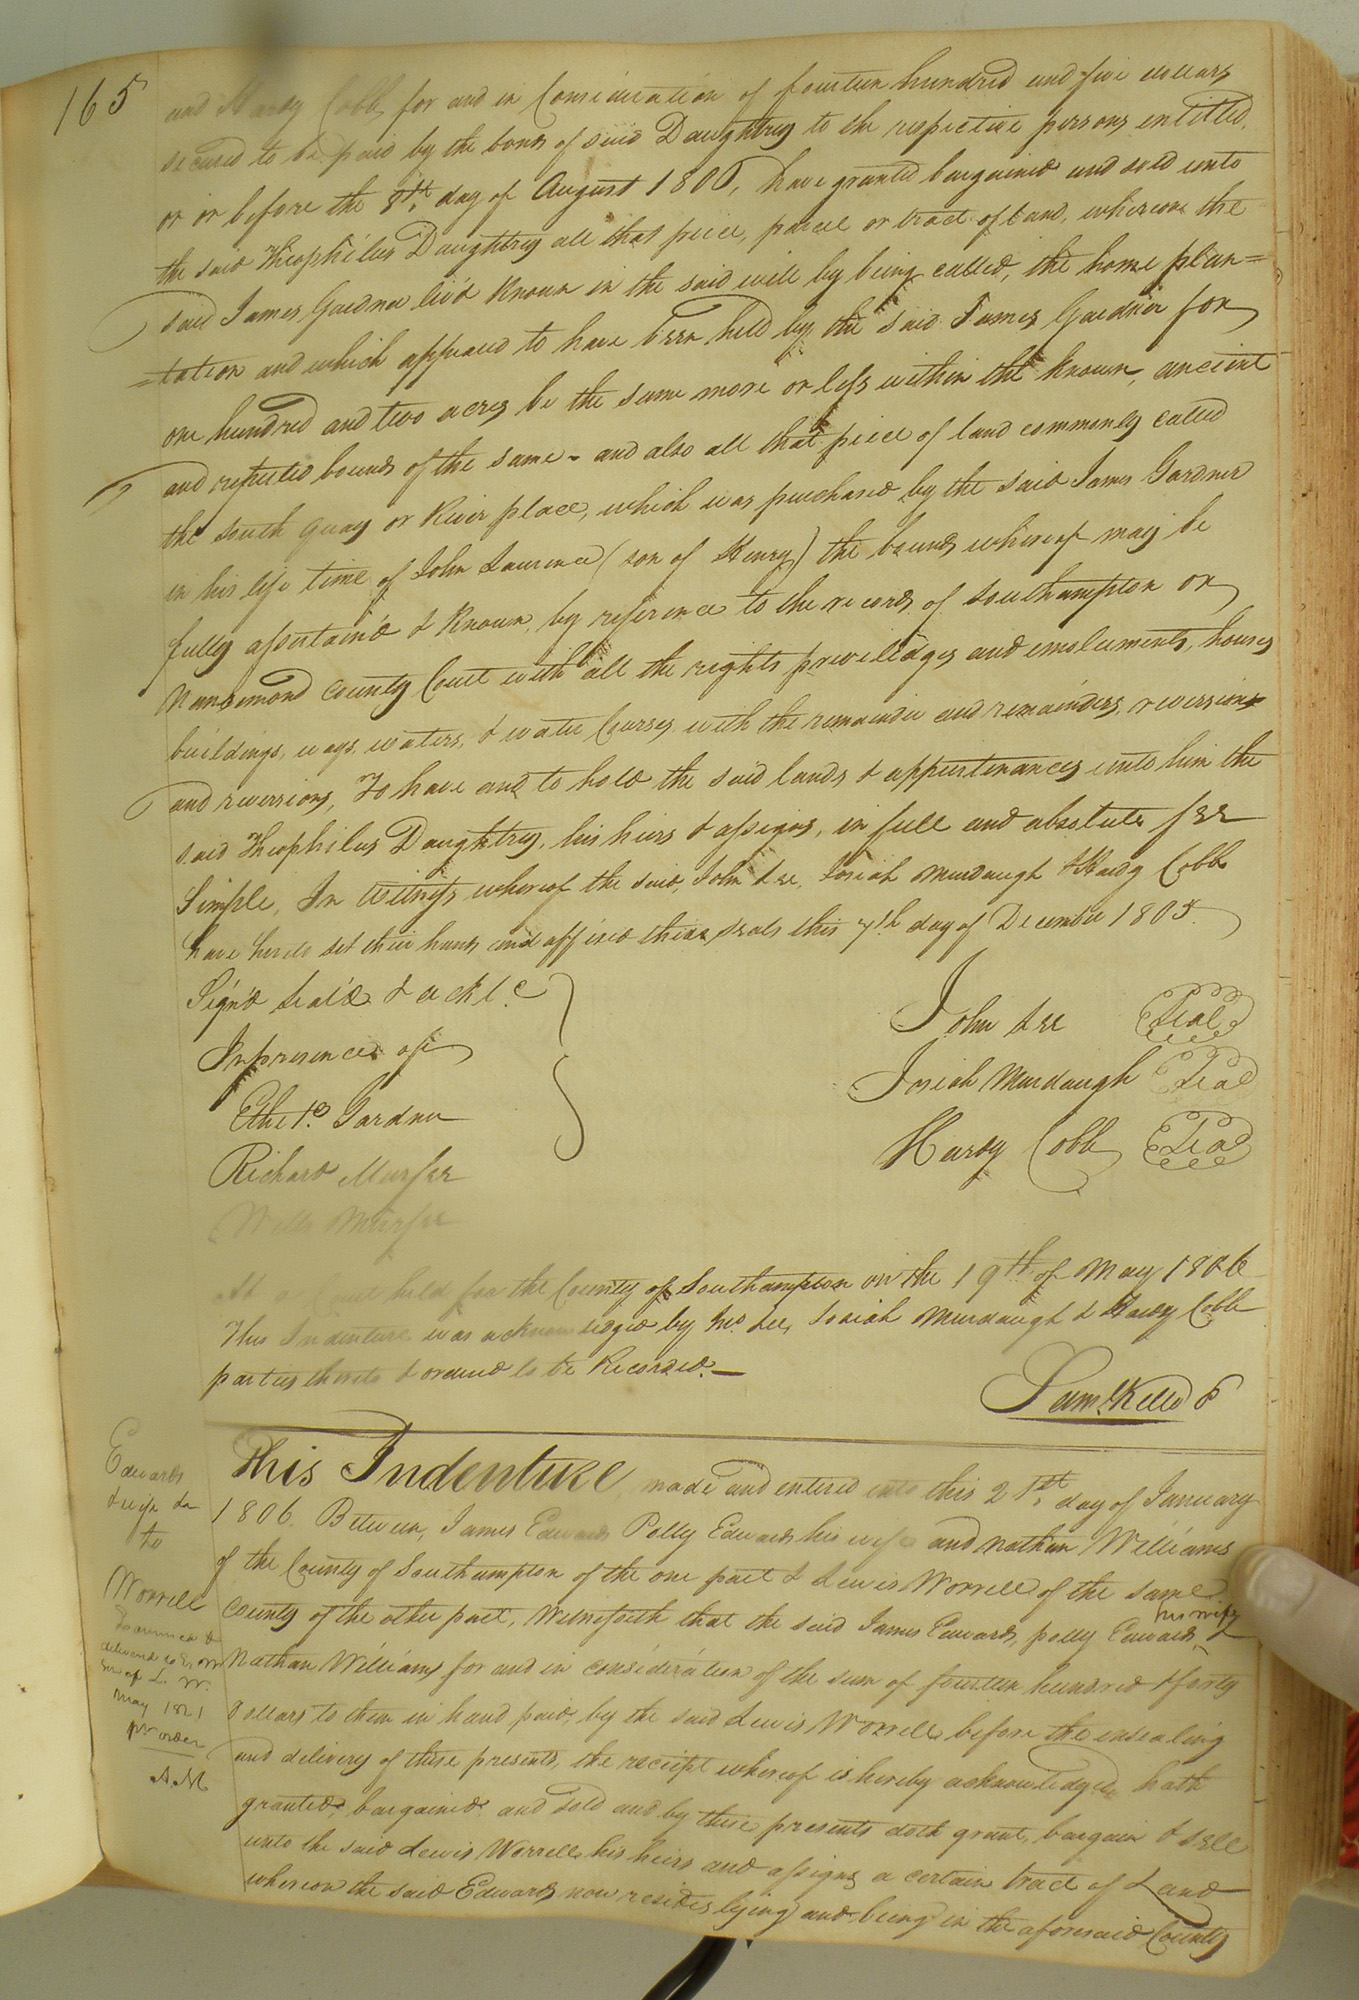 165
and Hardy Cobb, for and in Consideration of fourteen hundred and five dollars
secured to be paid by the bond of said Daughtrey to the respective persons entitled,
or or before the 8th. day of August 1806, have granted bargained and sold unto
the said Theophilus Daughtrey all that piece, parcel or tract of Land, whereon the
said James Gardner liv'd known in the said will by being called, the home plan=
=tation and which appeared to have been held by the said James Gardner for
one hundred and two acres be the same more or less within the known, ancient
and reputed bounds of the same - and also all that piece of land commonly called
the South quay or River place, which was purchased by the said James Gardner
in his life time of John Laurence (son of Henry) the bounds whereof may be
fully assertain'd & known, by reference to the records of Southampton or
Nansemond County Court with all the rights priviledges and emoluments, houses
buildings, ways, waters, & water Courses, with the remainder and remainders, reversions
and reversions, To have and to hold the said lands & appurtenances unto him the
said Theophilus Daughtrey, his heirs & assigns, in full and absolute fee
Simple, In Witness whereof the said, John Lee, Josiah Murdaugh & Hardy Cobb
have hereto set their hands and affixed their seals this 7th day of December 1805.
Sign'd Seal'd & ackl.d
In presence of
Ethel.d Gardner
Richard Murfee
Wills Murfee
John Lee Seal
Josiah Murdaugh Seal
Hardy Cobb Seal
At a Court held for the County of Southampton on the 19th of May 1806
This Indenture was acknowledged by Jno. Lee, Josiah Murdaugh & Hardy Cobb
parties thereto & ordered to be Recorded. —
Saml. Kello C
Edwards
& wife &a
to
Worrell
Examined &
delivered to E. W.
son of L. W.
May 1821
pr order
A.M
This Indenture, made and entered into this 21st. day of January
1806. Between, James Edwards Polly Edwards his wife and Nathan Williams
of the County of Southampton of the one part & Lewis Worrell of the same
County of the other part, Witnesseth that the said James Edwards, polly Edwards, his wife
Nathan Williams for and in consideration of the sum of fourteen hundred & forty
dollars to them in hand paid, by the said Lewis Worrell before the ensealing
and delivery of these presents, the receipt whereof is hereby acknowledged, hath
granted, bargained and sold and by these presents doth grant, bargain & sell
unto the said Lewis Worrell his heirs and assigns a certain tract of Land
whereon the said Edwards now resides lying and being in the aforesaid County